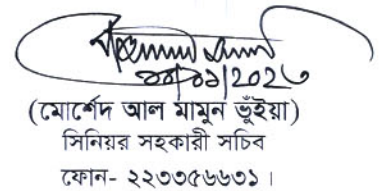 ০৪/০১/২০২৩
(মোর্শেদ আল মামুন ভূঁইয়া)
সিনিয়র সহকারী সচিব
ফোন- ২২৩৩৫৬৬৩১।